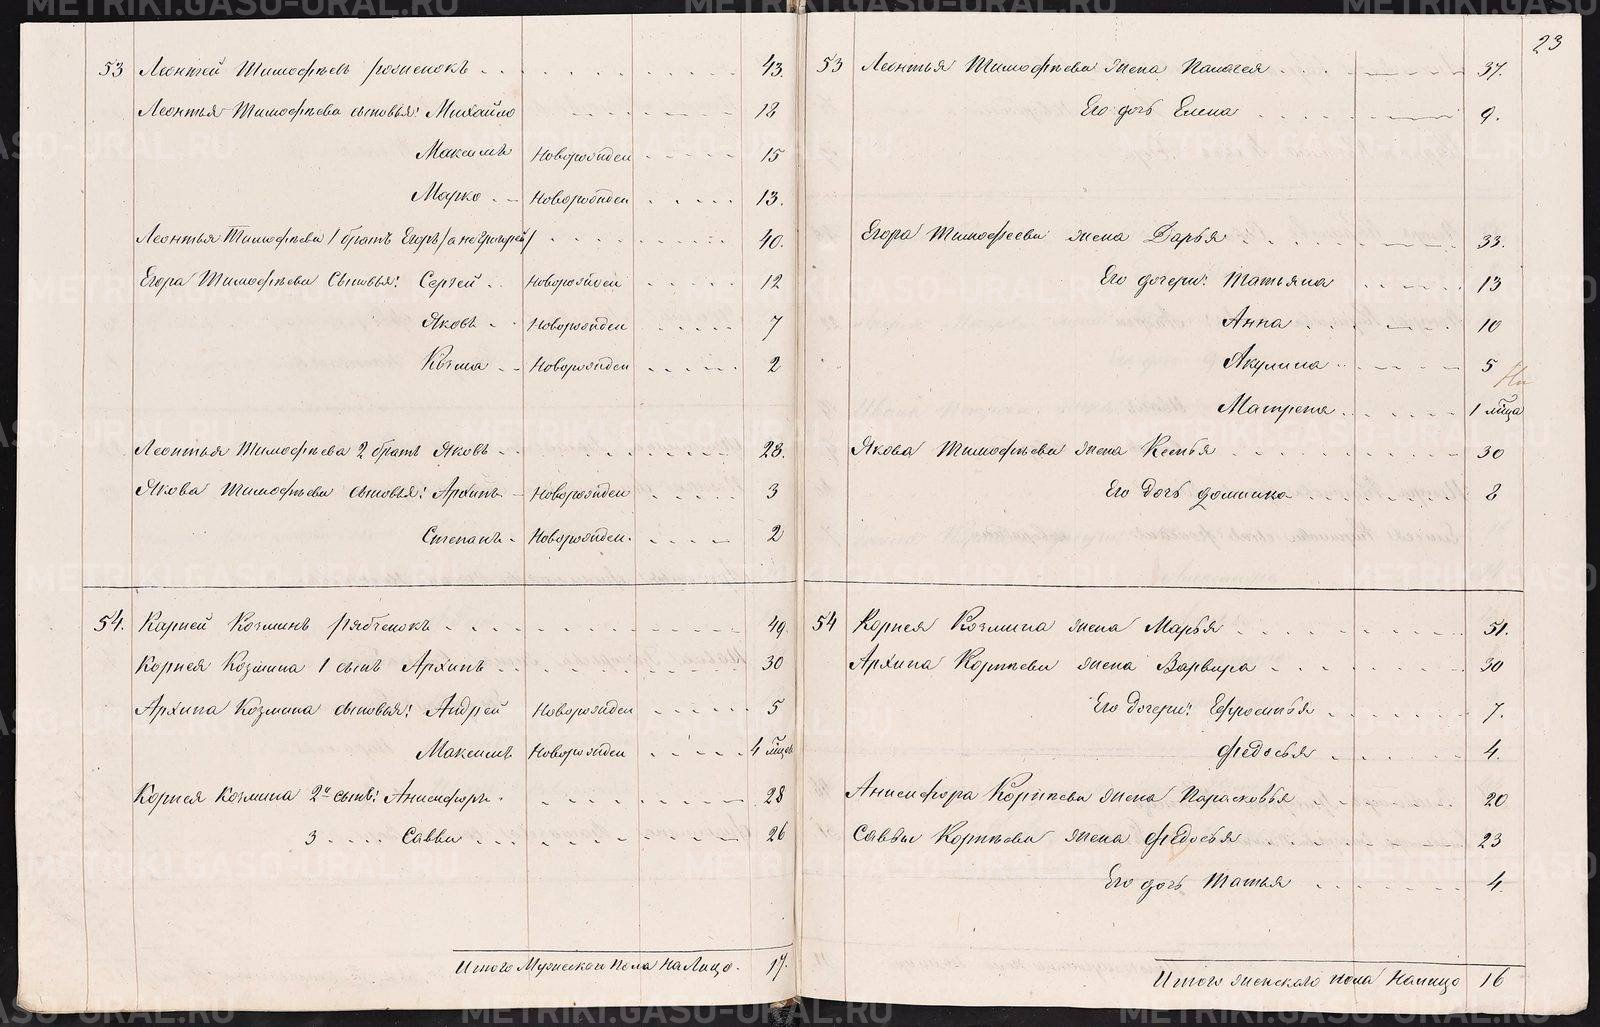 23
53 Леонтей Тимофѣевъ ромненокъ 43.
Леонтья Тимофѣева сыновья: Михайло 18
Максимъ Новорожден 15
Марко Новорожден 13.
Леонтья Тимофѣева 1 братъ Егоръ /а не Григорей/ 40.
Егора Тимофѣева Сыновья: Сергей Новорожден 12
Яковъ Новорожден 7
Козма Новорожден 2
Леонтья Тимофѣева 2 братъ Яковъ 28.
Якова Тимофѣева сыновья: Архипъ Новорожден 3
Степанъ Новорожден. 2
54. Карней Козминъ рябченокъ 49.
Корнея Козмина 1 сынъ Архипъ 30
Архипа Козмина сыновья: Андрей Новорожден 5
Максимъ Новорожден 4 мѣсец
Корнея Козмина 2й сынъ: Анисифоръ 28
3 Савва 26
Итого Мужеска Пола На Лицо. 17.
53 Леонтья Тимофѣева жена Палагея 37.
Его дочь Елена 9.
Егора Тимофеева жена Дарья 33.
Его дочери: Татьяна 13
Анна 10
Акулина 5
Матрена 1 мѣсца
Якова Тимофѣева жена Ксенья 30
Его Дочь домника 8
54 Корнея Козмина жена Марья 51.
Архипа Корнѣева жена Варвара 30
Его дочери: Ефросинья 7.
федосья 4.
Анисифора Корнѣева жена Парасковья 20
Саввы Корнѣева жена федосья 23
Его дочь Татья 4.
Итого женскаго пола Налицо 16
METRIKI.GASO-URAL.RU